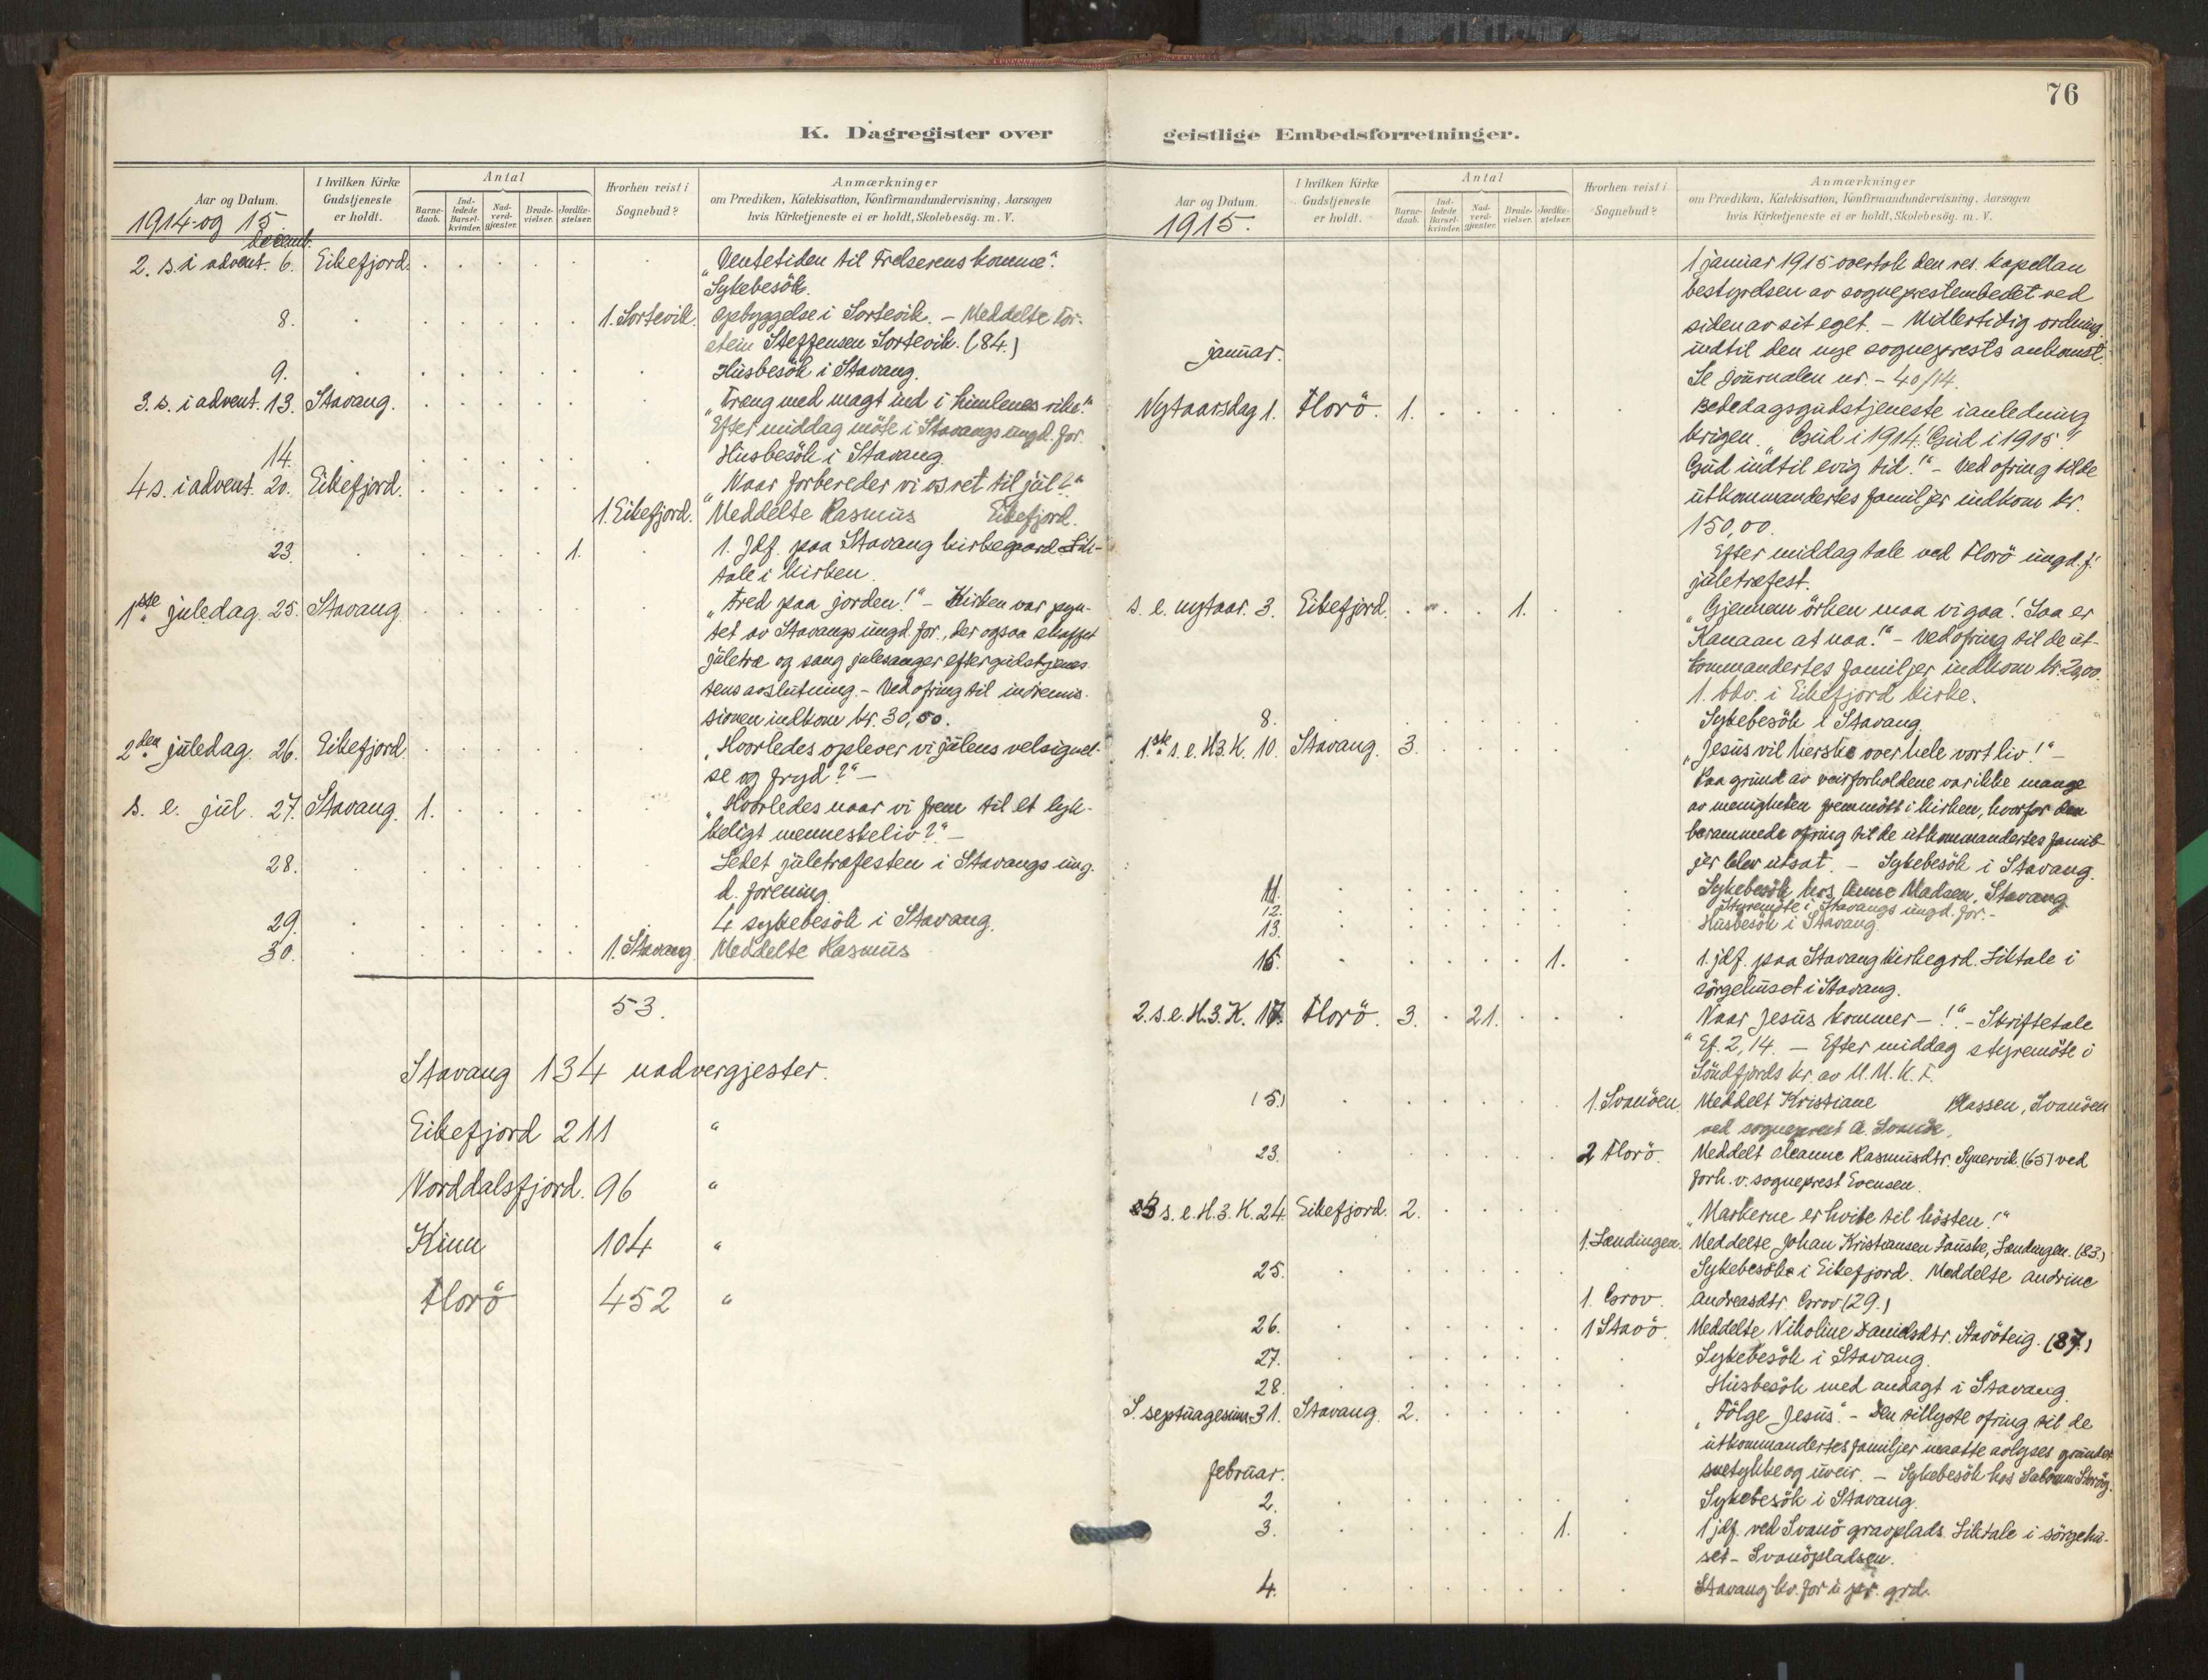 76
K. Dagregister over geistlige Embedsforretninger.
Aar og Datum.
I hvilken Kirke Gudstjeneste er holdt.
Antal
Barnedaab.
Indledede Barselkvinder.
Nadverdgjæster.
Brudevielser.
Jordfæstelser.
Hvorhen reist i Sognebud?
Anmærkninger
om Prædiken, Katekisation, Konfirmandundervisning, Aarsagen
hvis Kirketjeneste ei er holdt, Skolebesøg. m. V.
1914 og 15.
decemb.
2. s. i advent. 6. Eikefjord. "Ventetiden til Frelserens komme".
Sykebesök.
8. 1. Sortevik. Opbyggelse i Sortevik. – Meddelte Tor-
stein Steffensen Sortevik. (84.)
9. Husbesök i Stavang.
3. s. i advent. 13. Stavang. "Træng med magt ind i himlenes rike!"
Efter middag möte i Stavangs ungd. for.
14. Husbesök i Stavang.
4 s. i advent. 20. Eikefjord. "Naar forbereder vi os ret til jul?"
1. Eikefjord. Meddelte Rasmus Eikefjord.
23. 1. 1. Jdf. paa Stavang kirkegaard. Lik-
tale i kirken.
1ste juledag. 25. Stavang "Fred paa jorden!" – Kirken var pyn-
tet av Stavangs ungd. for., der ogsaa skaffet
juletræ og sang julesanger efter gudstjenes-
tens avslutning. – Ved ofring til indremis-
sionen indkom kr. 30,50.
2den juledag. 26. Eikefjord "Hvorledes oplever vi julens velsignel-
se og fryd?" –
s. e. jul. 27. Stavang. 1. "Hvorledes naar vi frem til et lyk-
keligt menneskeliv?" –
28. Ledet juletræfesten i Stavangs ung-
d. forening.
29. 4 sykebesök i Stavang.
30. 1. Stavang. Meddelte Rasmus
53.
Stavang 134 nadvergjester.
Eikefjord 211 "
Norddalsfjord. 96 "
Kinn 104 "
Florö 452 "
Aar og Datum.
I hvilken Kirke Gudstjeneste er holdt.
Antal
Barnedaab.
Indledede Barselkvinder.
Nadverdgjæster.
Brudevielser.
Jordfæstelser.
Hvorhen reist i Sognebud?
Anmærkninger
om Prædiken, Katekisation, Konfirmandundervisning, Aarsagen
hvis Kirketjeneste ei er holdt, Skolebesøg. m. V.
1915.
1 januar 1915 overtok den res. kapellan
bestyrelsen av sogneprestembedet ved
siden av sit eget. – Midlertidig ordning
januar. indtil den nye sogneprests ankomst.
Se journalen nr. – 40/14.
Nytaarsdag 1. Florö. 1. Bededagsgudstjeneste i anledning
krigen. "Gud i 1914. Gud i 1915."
Gud indtil evig tid!" – Ved ofring til de
utkommandertes familjer indkom kr.
150,00.
Efter middag tale ved Florö ungd. f.
juletræfest.
s. e. nytaar. 3. Eikefjord. 1. "Gjennem örken maa vi gaa! Saa er
Kanaan at naa!" – Ved ofring til de ut-
kommandertes familjer indkom kr. 20,00.
1. bdv. i Eikefjord kirke.
8. Sykebesök i Stavang.
1ste s. e. H.3.K. 10. Stavang. 3. "Jesus vil herske over hele vort liv!" –
Paa grund av veirforholdene var ikke mange
av menigheten fremmött i kirken, hvorfor den
berammede ofring til de utkommandertes famil-
jer blev utsat. – Sykebesök i Stavang.
11. Sykebesök hos Anne Madsen, Stavang
12. Styremöte i Stavangs ungd. for. –
13. Husbesök i Stavang.
16. 1. 1. jdf. paa Stavang kirkegrd. Liktale i
sörgehuset i Stavang.
2. s. e. H.3.K. 17. Florö. 3. 21. Naar Jesus kommer – !" – Skriftetale
"Ef. 2,14. – Efter middag styremöte i
Söndfjords kr. av U. M. K. F.
15.) 1. Svanöen. Meddelt Kristiane Klassen, Svanöen
ved sogneprest A.
23. 2 Florö. Meddelt Oleanne Rasmusdtr. (65) ved
forh. v. sogneprest Evensen.
3 s. e. H.3.K. 24. Eikefjord. 2. "Markerne er hvite til hösten!"
1. Lændingen. Meddelte Johan Kristiansen Fauske, Lændingen. (83.)
25. Sykebesök i Eikefjord. Meddelte Andrine
1. Grov. Andreasdtr. Grov (29.)
26. 1 Stavö. Meddelte Nikoline Danielsdtr. Stavöteig. (87.)
27. Sykebesök i Stavang.
28. Husbesök med andagt i Stavang.
S. septuagesima 31. Stavang. 2. "Fölge Jesus". – Den tillyste ofring til de
utkommandertes familjer maatte avlyses grundet
februar. snetykke og uveir. – Sykebesök hos
2. Sykebesök i Stavang.
3. 1. 1 jdf. ved Svanö gravplads. Liktale i sörgehu-
set – Svanöpladsen.
4. Stavang kv. for